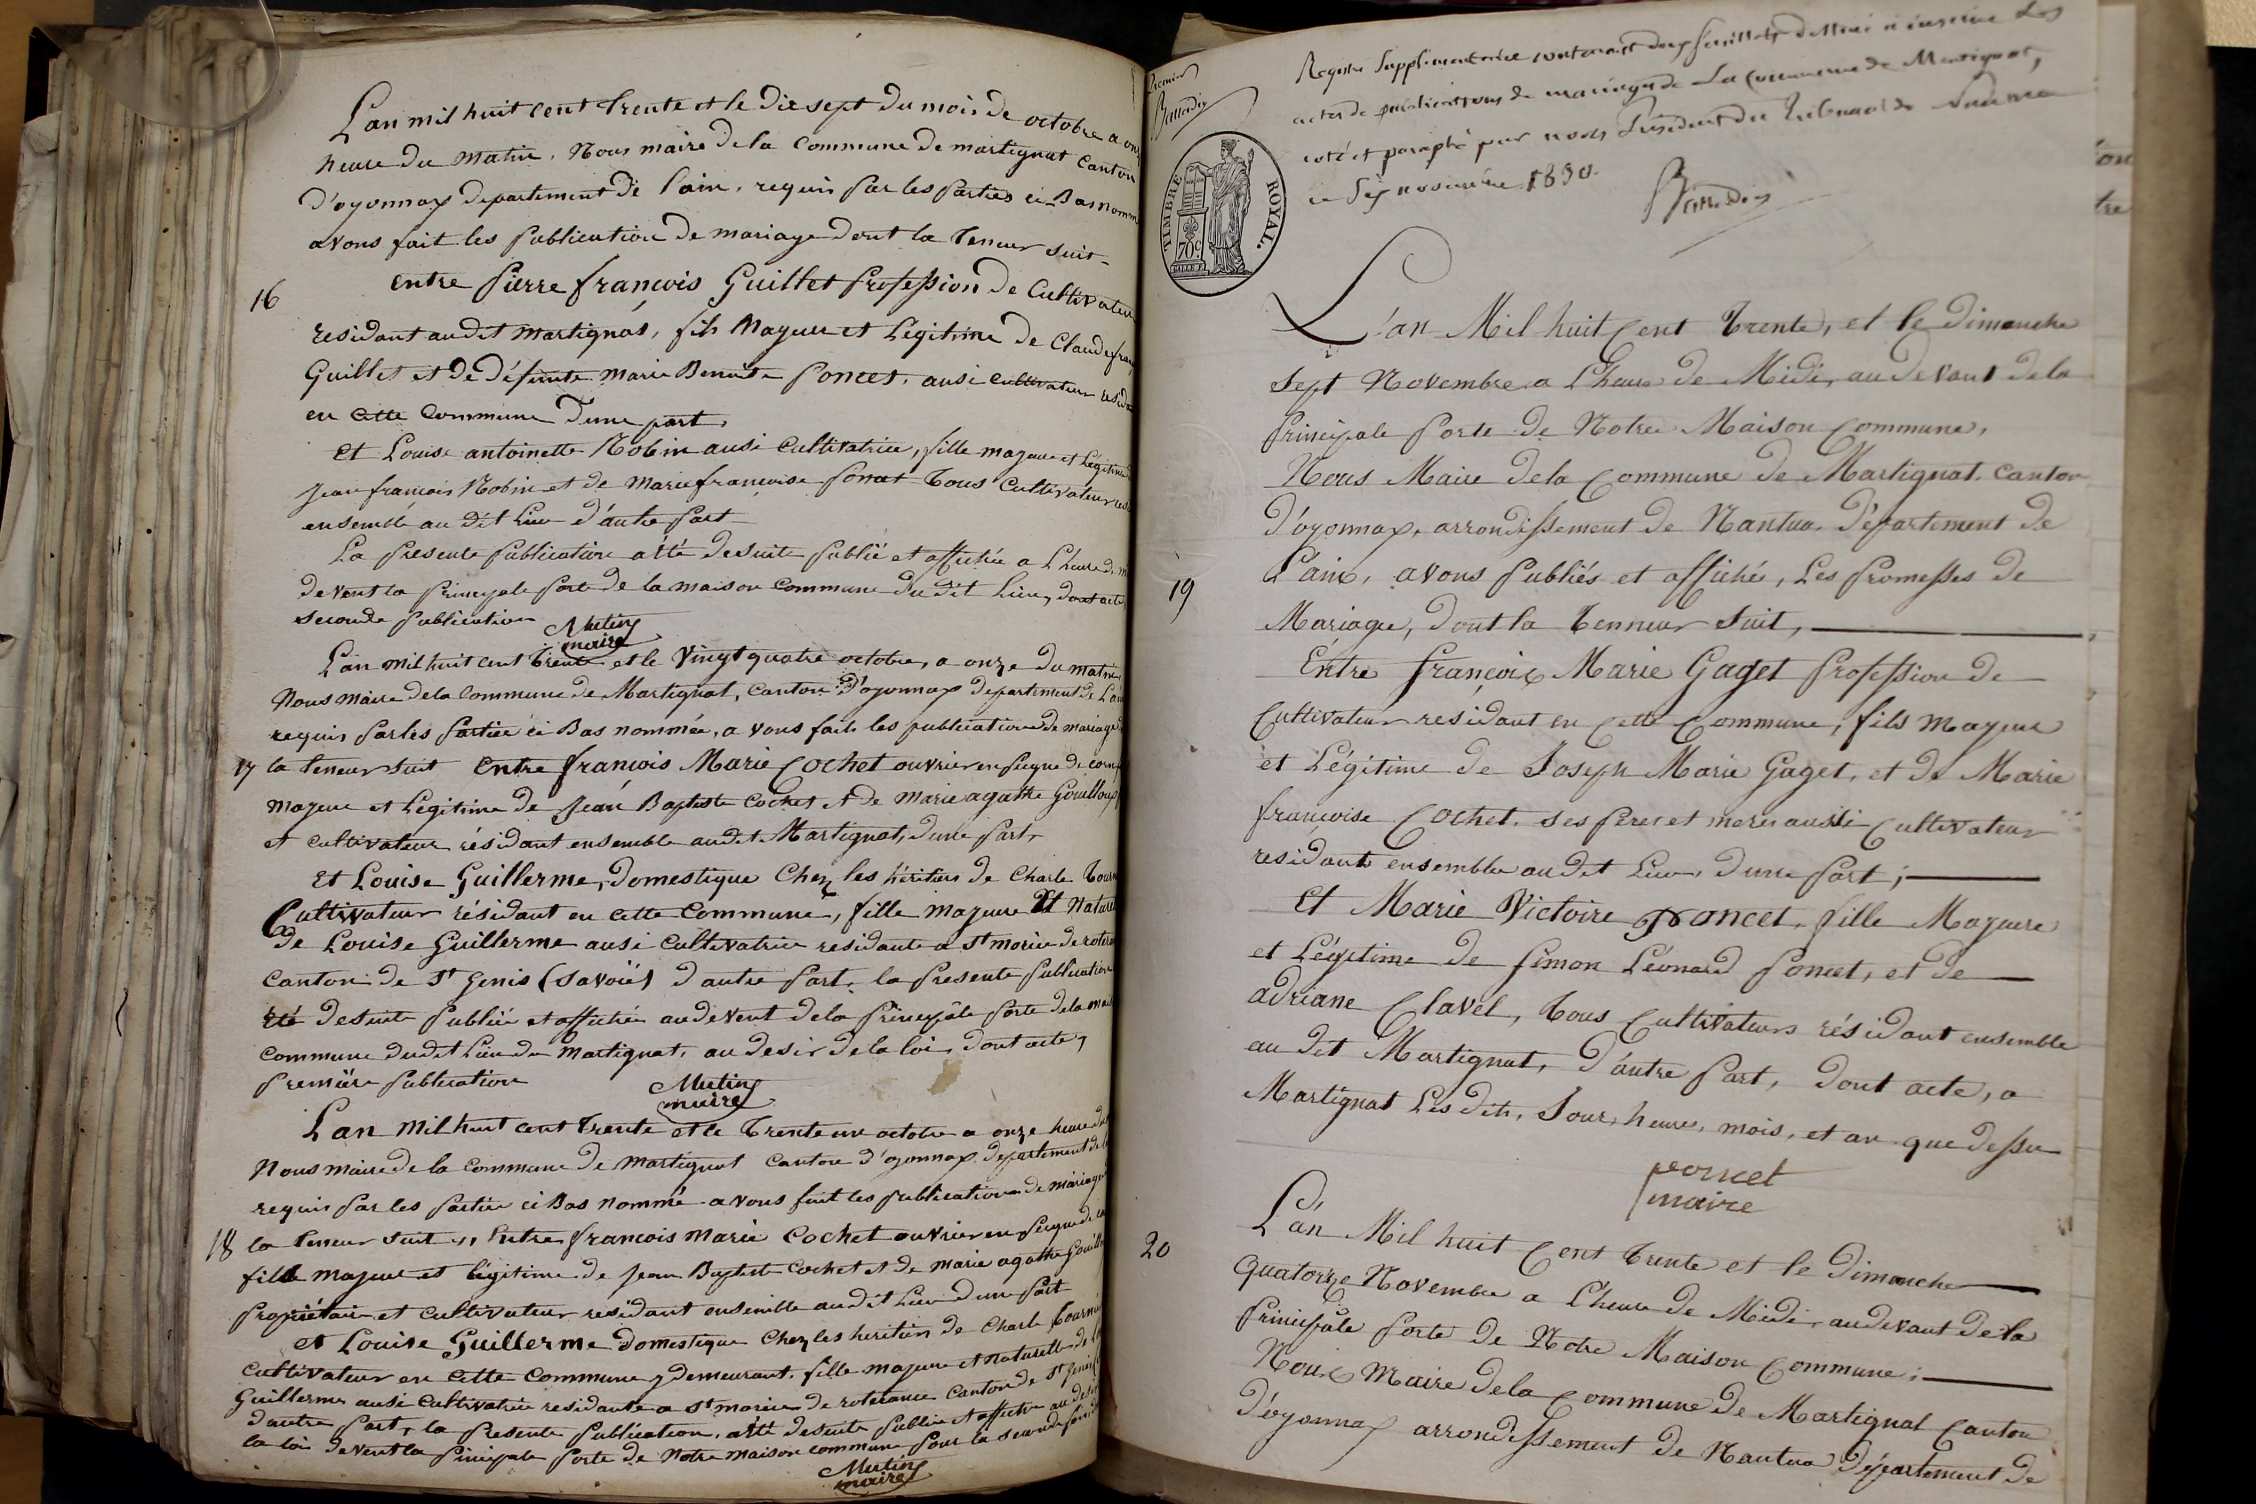 L'an mil huit cent trente et le dix sept du mois de octobre a
heure du matin. Nous maire de la commune de martignat canton
d'oyonnax departement de l'ain, requis par les parties ci-Bas
avons fait les publication de mariage dont la teneur suit-
16
entre pierre françois Guillet profession de Cultivateur
residant audit martignat, fils Majeur et Légitime de Claude
Guillet et de défunte marie Benoite poncet, ausi cultivateur
en cette commune d'une part,
et Louise antoinette Robin ausi cultivatrice, fille majeure et Légitime
jean francois Robin et de marie francoise poncet tous cultivateurs
ensemble au dit Lieu d'autre part
La presente publication a été desuite publié et affichée a L'heure
devent la principale porte de la maison commune du dit Lieu, dont acte
seconde publication
Mutin
maire
L'an mil huit cent trente et le vingt quatre octobre, a onze du matin
Nous maire de la commune de Martignat, canton d'oyonnax departement de L'ain
requis par les partie ci Bas nommée, avons fait les publication de mariage
17 la teneur suit entre françois Marie Cochet ouvrier en peigne de
majeur et Légitime de Jean Baptiste Cochet et de marie agathe
et cultivateur résidant ensemble audit Martignat, d'une part,
et Louise Guillerme, domestique Chez les héritiers de Charle
Cultivateur résidant en cette commune, fille majeure et
de Louise Guillerme ausi cultivatrice residante a St morice de
canton de St Genis (savoie) d'autre part, la presente publication
été desuite publiée et affichée audevent de la principale porte de la
commune dudit Lieu de Martignat, au desir de la loi, dont acte,
premiere publication
Mutin
maire
L'an mil huit cent trente et le trente un octobre a onze heure
Nous maire de la commune de martignat canton d'oyonnax departement de
requis par les partie ci Bas nommé avons fait les publication de mariage
18 la teneur suit, Entre francois marie Cochet ouvrier en peigne de
fils majeur et légitime de jean Baptiste Cochet et de marie agathe
propriétaire et cultivateur residant ensemble audit Lieu d'une part
et Louise Guillerme domestique Chez les heritiers de Charle
cultivateur en cette commune y demeurant, fille majeure et naturelle de
Guillerme ausi cultivatrice residante a St morice de roterance canton de St Genis
d'autre part, la presente publication, a été desuite publié et affiché au desir
la loi devent la principale porte de Notre maison commune pour la seconde
Mutin
maire
Premier
Registre supplémentaire contenant deux feuillets destiné à inscrire Les
actes de publications de mariages de La Commune de Martignat,
coté et paraphé par nous Président du Tribunal de Nantua
ce six novembre 1830.
TIMBRE ROYAL.
70 c
L'an Mil huit Cent trente, et le dimanche
sept Novembre a L'heure de Midi, au devant de la
principale porte de Notre Maison commune,
Nous Maire de la Commune de Martignat, canton
d'oyonnax, arrondissement de Nantua, département de
19
L'ain, avons publiés et affichés, Les promesses de
Mariage, dont la tenneur suit,
Entre françois Marie Gaget profession de
Cultivateur residant en cette commune, fils majeur
et Légitime de Joseph Marie Gaget, et de Marie
françoise Cochet, ses peres et meres aussi Cultivateur
residant ensemble audit Lieu, d'une part;
Et Marie Victoire poncet, fille Majeure
et Légitime de simon Léonard poncet, et de
adriane Clavel, tous Cultivateurs résidant ensemble
au dit Martignat, d'autre part, dont acte, a
Martignat Les dits, jour, heure, mois, et an que dessu
poncet
maire
20
L'an Mil huit Cent trente et le dimanche
quatorze Novembre a L'heure de Midi, au devant de la
principale porte de Notre Maison commune;
Nous Maire de la commune de Martignat canton
d'oyonnax arrondissement de Nantua département de